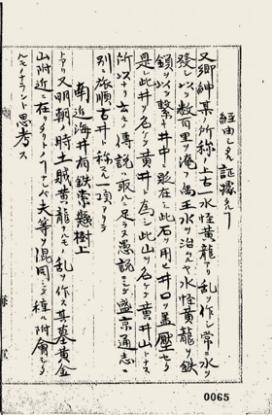 経由シタル証蹟ナシ
又郷紳某ノ所称ニ上古水怪黄龍アリ乱ヲ作シ常ニ水ヲ
発シ以テ数百里ヲ淹フ禹王水ヲ治ムルヤ水怪黄龍ヲ鉄
鎖ヲ以テ繋キ井中ニ 在シ此石ヲ用ヒ井口ヲ蓋圧セリ
是レ此井ヲ名ケテ黄井ト為シ此山ヲ名ケテ黄井山トナス
所以ナリ云々ト傳説ハ取ルニ足ラス愚説ニシテ盛京通志ニ
別ニ旅順古井ト称スル一項アリ
南近海井有鉄索懸樹上
トアリ又明朝ノ時土賊黄龍ナルモノ乱ヲ作ス其墓黄金
山附近ニ在リ タルトノコトナレバ夫等ヲ混同シテ 附會セ
ルモノナラント思考ス
0065